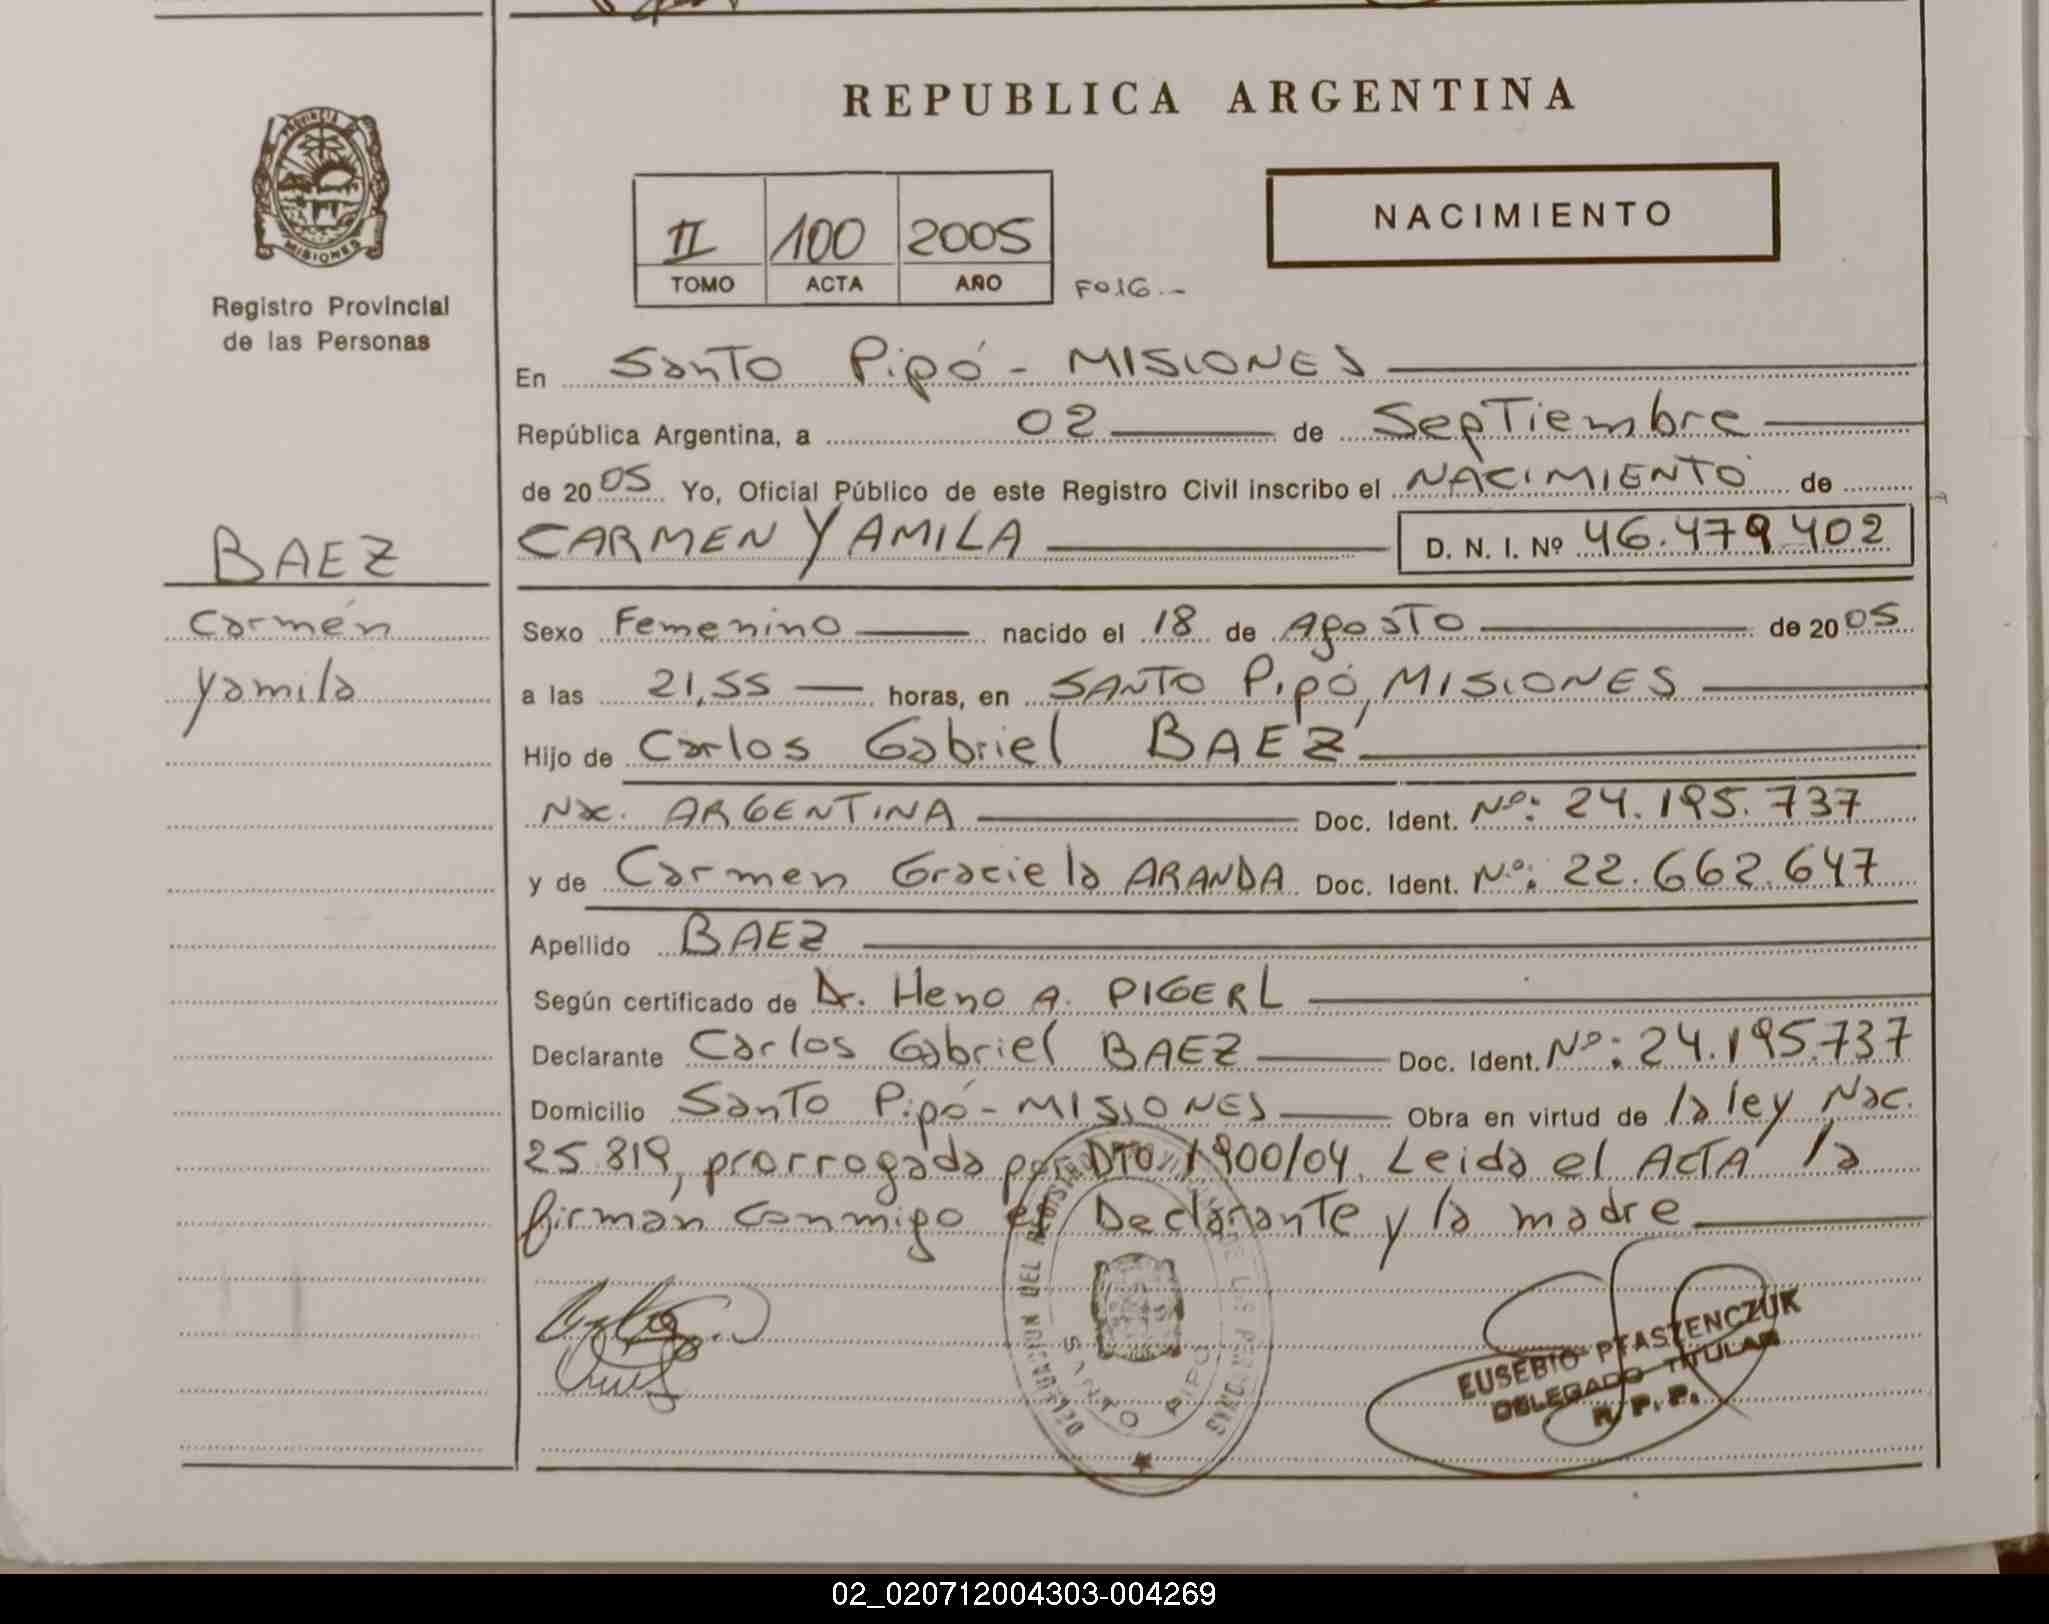 REPUBLICA ARGENTINA
PROVINCIA DE
MISIONES
Registro Provincial
de las Personas
II 100 2005
TOMO ACTA AÑO
Fo16.-
NACIMIENTO
En Santo Pipó - MISIONES
República Argentina, a 02 de Septiembre
de 2005 Yo, Oficial Público de este Registro Civil inscribo el NACIMIENTO de
CARMEN YAMILA D. N. I. Nº 46.479.402
BAEZ
Carmén
Yamila
Sexo Femenino nacido el 18 de Agosto de 2005
a las 21,55 horas, en SANTO Pipó, MISIONES
Hijo de Carlos Gabriel BAEZ
Nac. ARGENTINA Doc. Ident. Nº: 24.195.737
y de Carmen Graciela ARANDA Doc. Ident. Nº: 22.662.647
Apellido BAEZ
Según certificado de Dr. A. PIGERL
Declarante Carlos Gabriel BAEZ Doc. Ident. Nº: 24.195.737
Domicilio Santo Pipó - MISIONES Obra en virtud de la ley Nac.
25.819, prorrogada por DTO. 1900/04. Leida el ACTA la
firman conmigo el Declarante y la madre
DELEGACION DEL REGISTRO PROVINCIAL DE LAS PERSONAS
SANTO PIPO
EUSEBIO PTASZENCZUK
DELEGADO TITULAR
R. P. P.
02_020712004303-004269